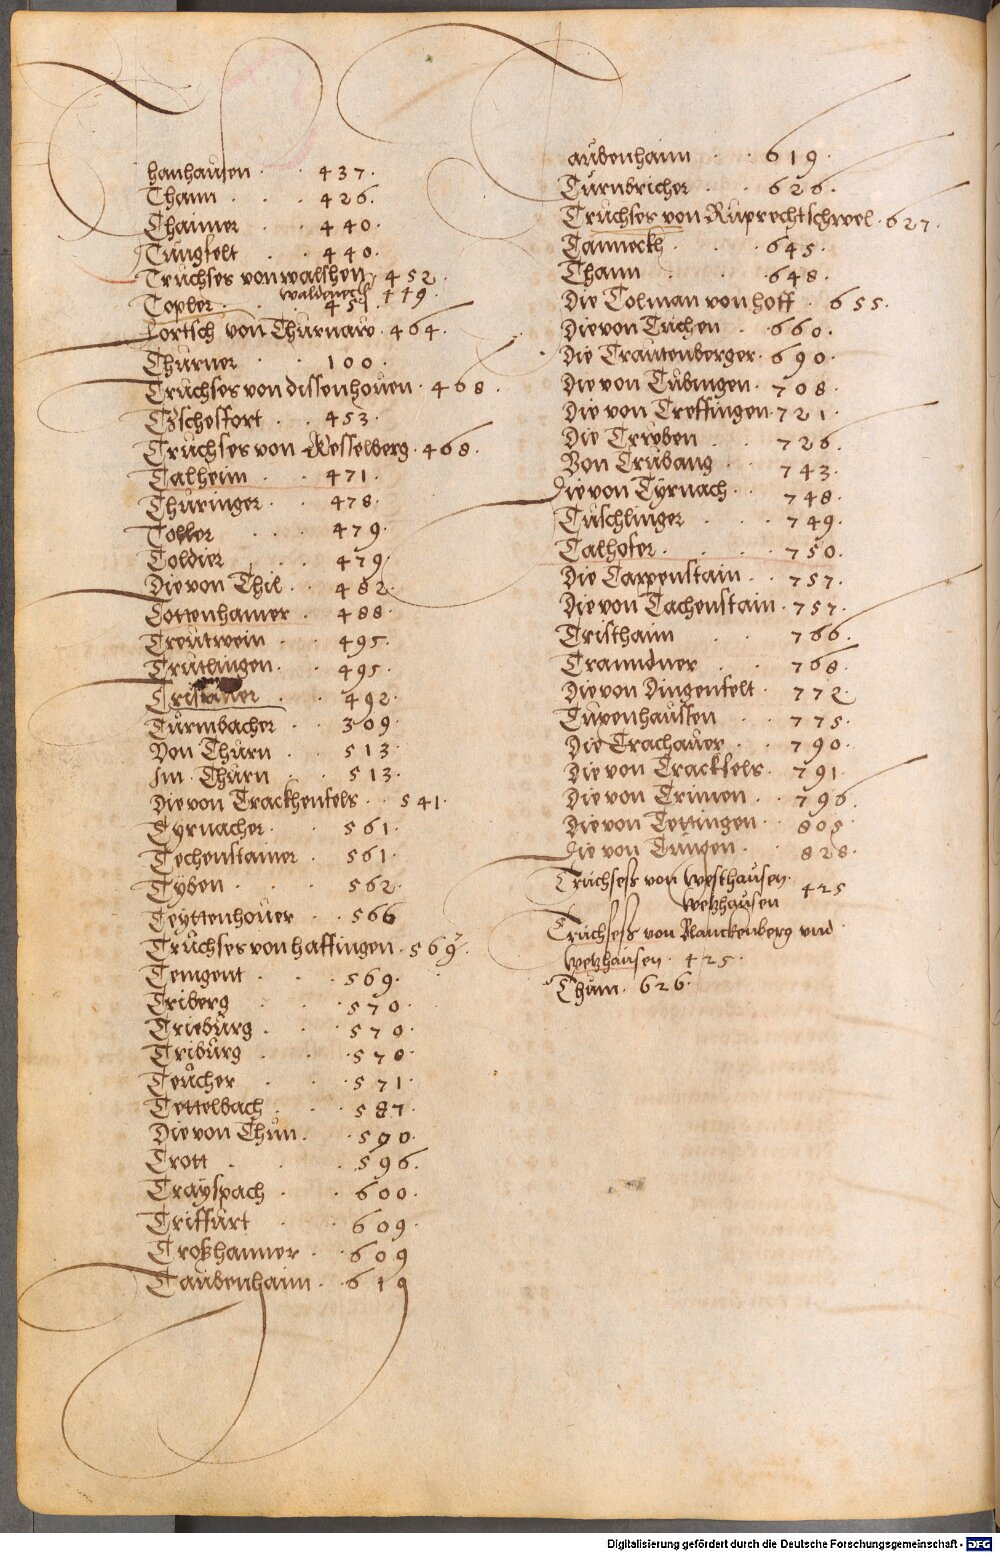 Thanhausen · · 437 ·
Thann · · · 426 ·
Thaimer · · 440 ·
Tungfelt · · 440 ·
Truchses von walshen · 452 ·
waldnerß 449 ·
Topler · · 451
Fortsch von Thurnaw · 464 ·
Thurner · · 100 ·
Truchses von dissenhouen · 468 ·
Tzschesfort · · 453 ·
Truchses von Wesselberg · 468 ·
Talheim · · 471 ·
Thuringer · · 478 ·
Tobler · · · 479 ·
Toldier · · 479 ·
Die von Thil · · 482 ·
Tottenhamer · · 488 ·
Treutwein · · 495 ·
Trutlingen · · 495 ·
492 ·
Turmbacher · · 309 ·
Von Thurn · · 513 ·
Im Thurn · · 513 ·
Die von Trackhenfels · · 541 ·
Tyrnacher · · 561 ·
Techenstainer · 561 ·
Tyben · · · 562 ·
Teyttenhouer · · 566
Truchses von haffingen · 569 ·
Temgent · · · 569 ·
Triberg · · 570 ·
Trieburg · · · 570 ·
Triburg · · · 570 ·
Teucher · · · 571 ·
Tettelbach · · · 587 ·
Die von Thun · · 590 ·
Trott · · · 596 ·
Trayspach · · 600 ·
Triffurt · · 609 ·
Troßhammer · · 609
Taubenhaim · · 619
Taubenhaim · · 619 ·
Turnbricher · · 626 ·
Truchses von Ruprechtschwel · 627 ·
Tanneckh · · 645 ·
Thann · · 648 ·
Die Tolman von hoff · 655 ·
Die von Tuchen · · 660 ·
Die Trautenberger · 690 ·
Die von Tubingen · 708 ·
Die von Treffingen · 721 ·
Die Trueben · · 726 ·
Von Trubang · · 743 ·
Die von Tyrnach · · 748 ·
Tuschlinger · · · 749 ·
Talhofer · · · · 750 ·
Die Tappenstain · · 757 ·
Die von Tachenstain · 757 ·
Tristhaim · · 766 ·
Traundner · · 768 ·
Die von Dingenfelt · 772 ·
Turenhaussen · · 775 ·
Die Trachauer · · 790 ·
Die von Trackfels · 791 ·
Die von Trimen · · 796 ·
Die von Tettingen · · 805 ·
Die von Tungen · · 828 ·
Truchseß von Westhausen · 425
Wetzhausen
Truchseß von Blanckenberg vnd
Wetzhausen · 425 ·
Thum · 626 ·
Digitalisierung gefördert durch die Deutsche Forschungsgemeinschaft - DFG